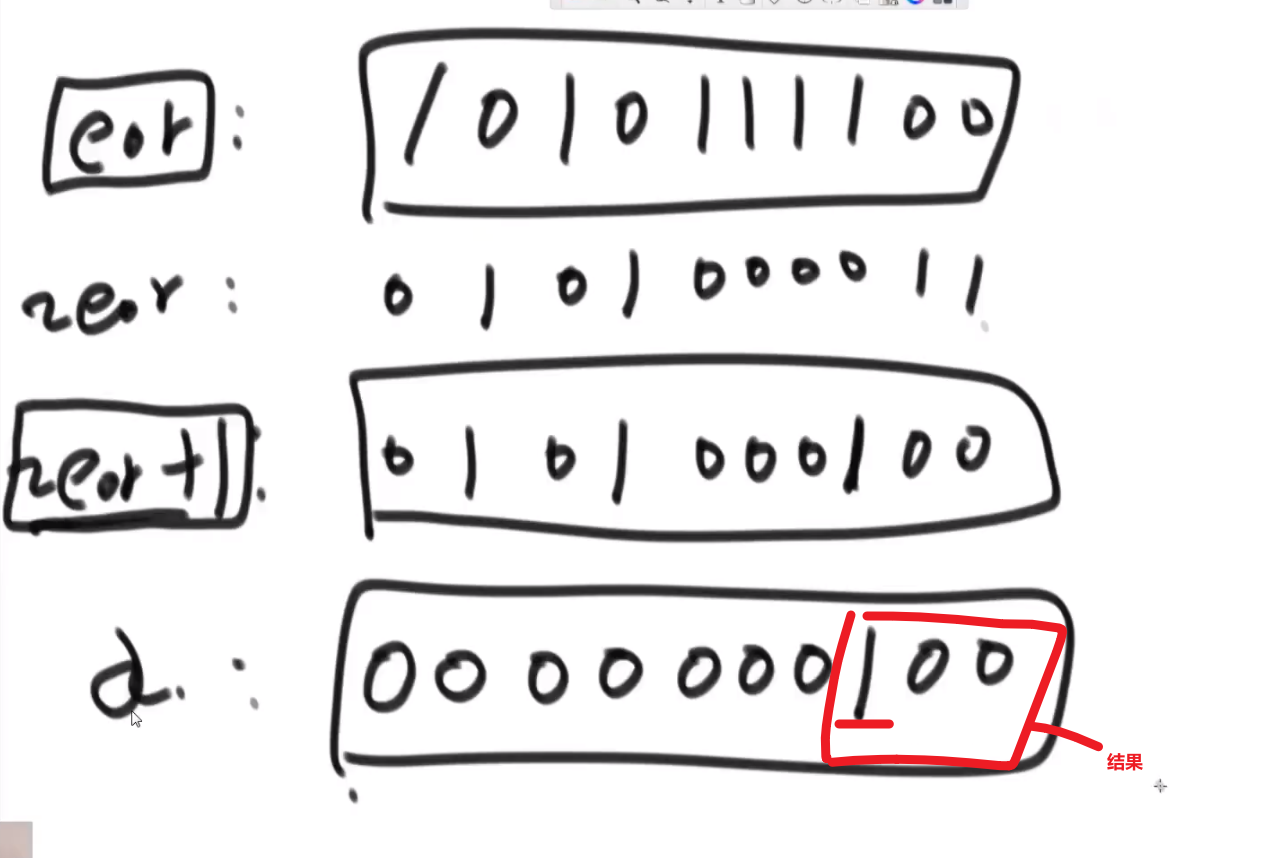 eor : 1010111100
~eor : 0101000011
~eor+1 : 0101000100
d. : 0000000100
结果